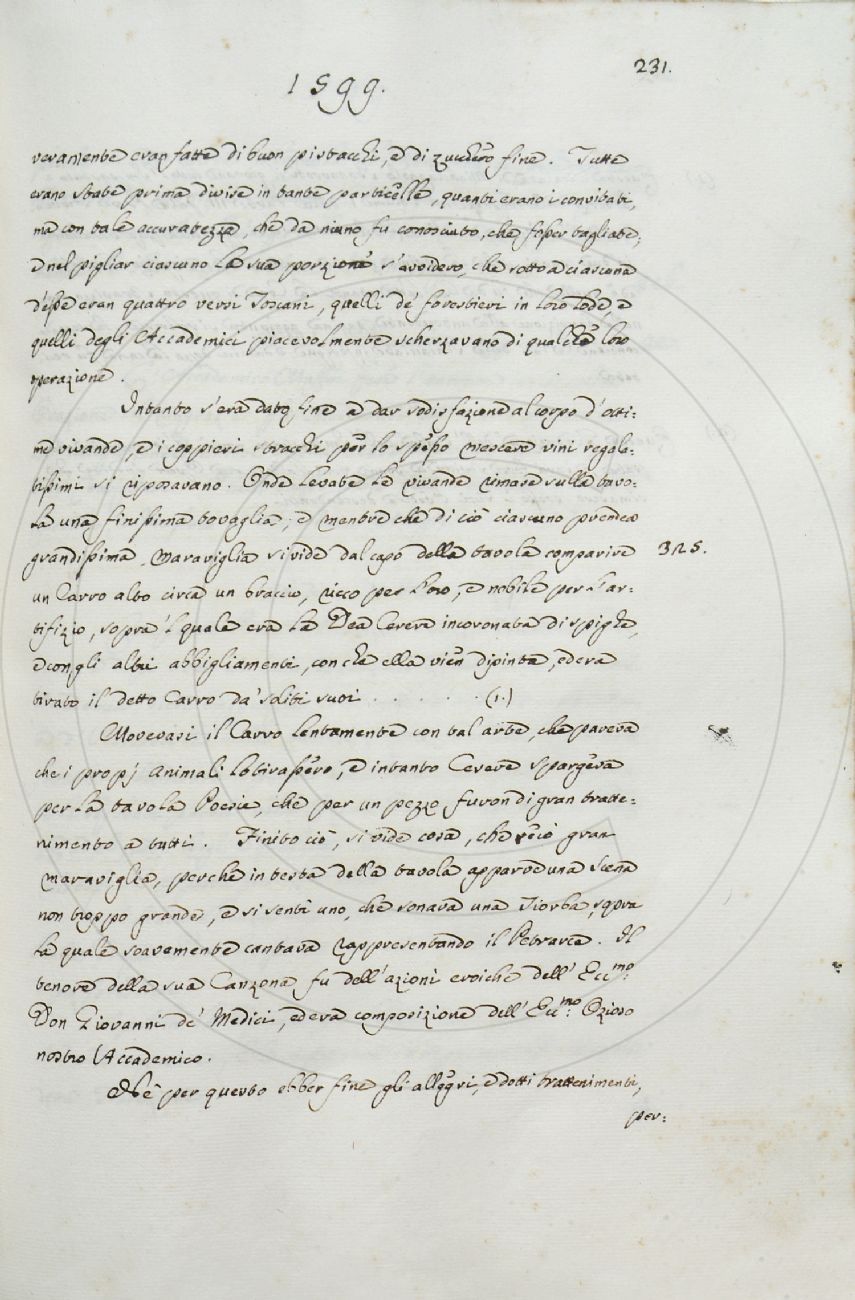 231.
1599.
veramente eran fatte di buon pistacchi, e di zucchero fine. Tutte
erano state prima divise in tante particelle, quanti erano i convitati,
ma con tale accuratezza, che da niuno fu conosciuto, che foßer tagliate;
e nel pigliar ciascuno la sua porzione s'avvidero, che sotto a ciascuna
d'eße eran quattro versi Toscani, quelli de' forestieri in loro lode, e
quelli degli Accademici piacevolmente scherzavano di qualche loro
operazione.
Intanto s'era dato fine a dar sodisfazione al corpo d'otti=
me vivande, e i coppieri stracchi per lo speßo mescere vini regala=
tißimi si riposavano. Onde levate le vivande rimase sulla tavo=
la una finißima tovaglia; e mentre che di ciò ciascuno prendea
grandißima maraviglia si vide dal capo della tavola comparire 325.
un Carro alto circa un braccio, ricco per l'oro, e nobile per l'ar=
tifizio, sopra 'l quale era la Dea Cerere incoronata di spighe,
e con gli altri abbigliamenti, con che ella vien dipinta, ed era
tirato il detto Carro da' soliti suoi . . . . . . (1.)
Movevasi il Carro lentamente con tal arte, che pareva
che i proprj animali lo tiraßero, e intanto Cerere spargeva
per la tavola Poesie, che per un pezzo furon di gran tratte=
nimento a tutti. Finito ciò, si vide cosa, che recò gran
maraviglia, perchè in testa della tavola apparve una scena
non troppo grande, e si sentì uno, che sonava una Tiorba, sopra
la quale soavemente cantava rappresentando il Petrarca. Il
tenore della sua Canzona fu dell'azioni eroiche dell' Ecc.mo
Don Giovanni de' Medici, ed era composizione dell' Ecc.mo Ozioso
nostro Accademico.
Nè per questo ebber fine gli allegri, e dotti trattenimenti,
per=